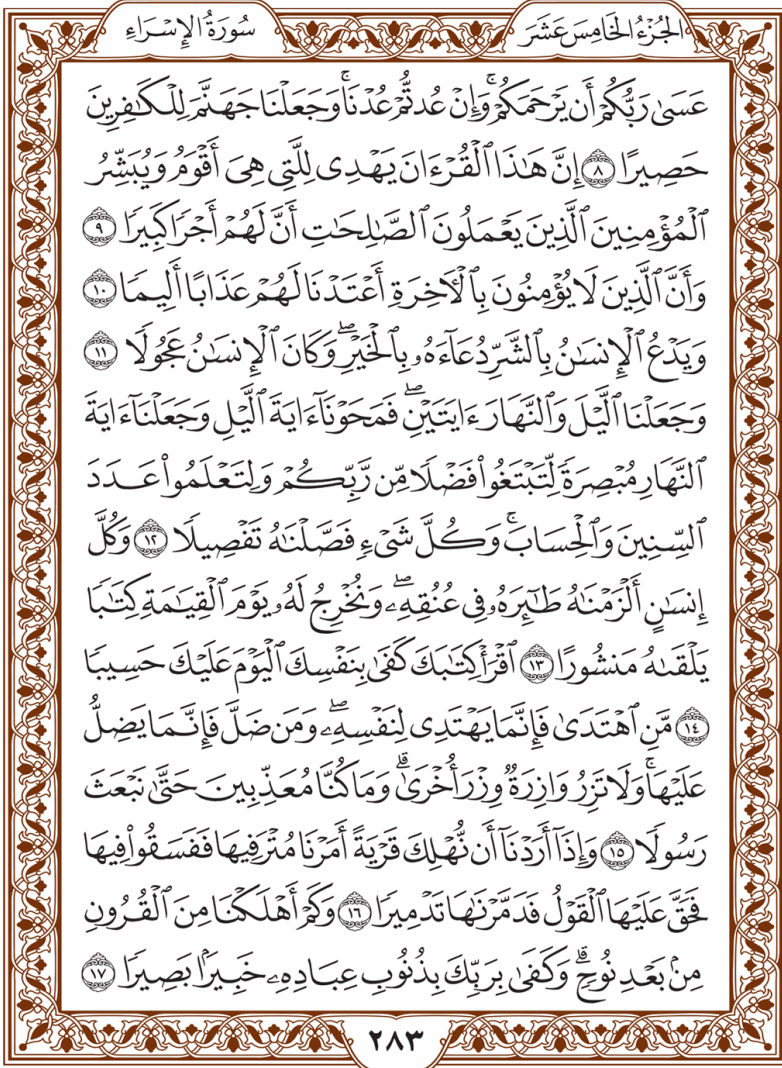 سُورَةُ الإِسْرَاء
الجُزْءُ الخَامِسَ عَشَرَ
عَسَىٰ رَبُّكُمْ أَن يَرْحَمَكُمْۚ وَإِنْ عُدتُّمْ عُدْنَاۚ وَجَعَلْنَا جَهَنَّمَ لِلْكَٰفِرِينَ
حَصِيرًا ٨ إِنَّ هَٰذَا ٱلْقُرْءَانَ يَهْدِى لِلَّتِى هِىَ أَقْوَمُ وَيُبَشِّرُ
ٱلْمُؤْمِنِينَ ٱلَّذِينَ يَعْمَلُونَ ٱلصَّٰلِحَٰتِ أَنَّ لَهُمْ أَجْرًا كَبِيرًا ٩
وَأَنَّ ٱلَّذِينَ لَا يُؤْمِنُونَ بِٱلْأَخِرَةِ أَعْتَدْنَا لَهُمْ عَذَابًا أَلِيمًا ١٠
وَيَدْعُ ٱلْإِنسَٰنُ بِٱلشَّرِّ دُعَآءَهُۥ بِٱلْخَيْرِۖ وَكَانَ ٱلْإِنسَٰنُ عَجُولًا ١١
وَجَعَلْنَا ٱلَّيْلَ وَٱلنَّهَارَ ءَايَتَيْنِۖ فَمَحَوْنَآ ءَايَةَ ٱلَّيْلِ وَجَعَلْنَآ ءَايَةَ
ٱلنَّهَارِ مُبْصِرَةً لِّتَبْتَغُوا۟ فَضْلًا مِّن رَّبِّكُمْ وَلِتَعْلَمُوا۟ عَدَدَ
ٱلسِّنِينَ وَٱلْحِسَابَۚ وَكُلَّ شَىْءٍ فَصَّلْنَٰهُ تَفْصِيلًا ١٢ وَكُلَّ
إِنسَٰنٍ أَلْزَمْنَٰهُ طَٰٓئِرَهُۥ فِى عُنُقِهِۦۖ وَنُخْرِجُ لَهُۥ يَوْمَ ٱلْقِيَٰمَةِ كِتَٰبًا
يَلْقَىٰهُ مَنشُورًا ١٣ ٱقْرَأْ كِتَٰبَكَ كَفَىٰ بِنَفْسِكَ ٱلْيَوْمَ عَلَيْكَ حَسِيبًا
١٤ مَّنِ ٱهْتَدَىٰ فَإِنَّمَا يَهْتَدِى لِنَفْسِهِۦۖ وَمَن ضَلَّ فَإِنَّمَا يَضِلُّ
عَلَيْهَاۚ وَلَا تَزِرُ وَازِرَةٌ وِزْرَ أُخْرَىٰۗ وَمَا كُنَّا مُعَذِّبِينَ حَتَّىٰ نَبْعَثَ
رَسُولًا ١٥ وَإِذَآ أَرَدْنَآ أَن نُّهْلِكَ قَرْيَةً أَمَرْنَا مُتْرَفِيهَا فَفَسَقُوا۟ فِيهَا
فَحَقَّ عَلَيْهَا ٱلْقَوْلُ فَدَمَّرْنَٰهَا تَدْمِيرًا ١٦ وَكَمْ أَهْلَكْنَا مِنَ ٱلْقُرُونِ
مِنۢ بَعْدِ نُوحٍۗ وَكَفَىٰ بِرَبِّكَ بِذُنُوبِ عِبَادِهِۦ خَبِيرًۢا بَصِيرًا ١٧
٢٨٣